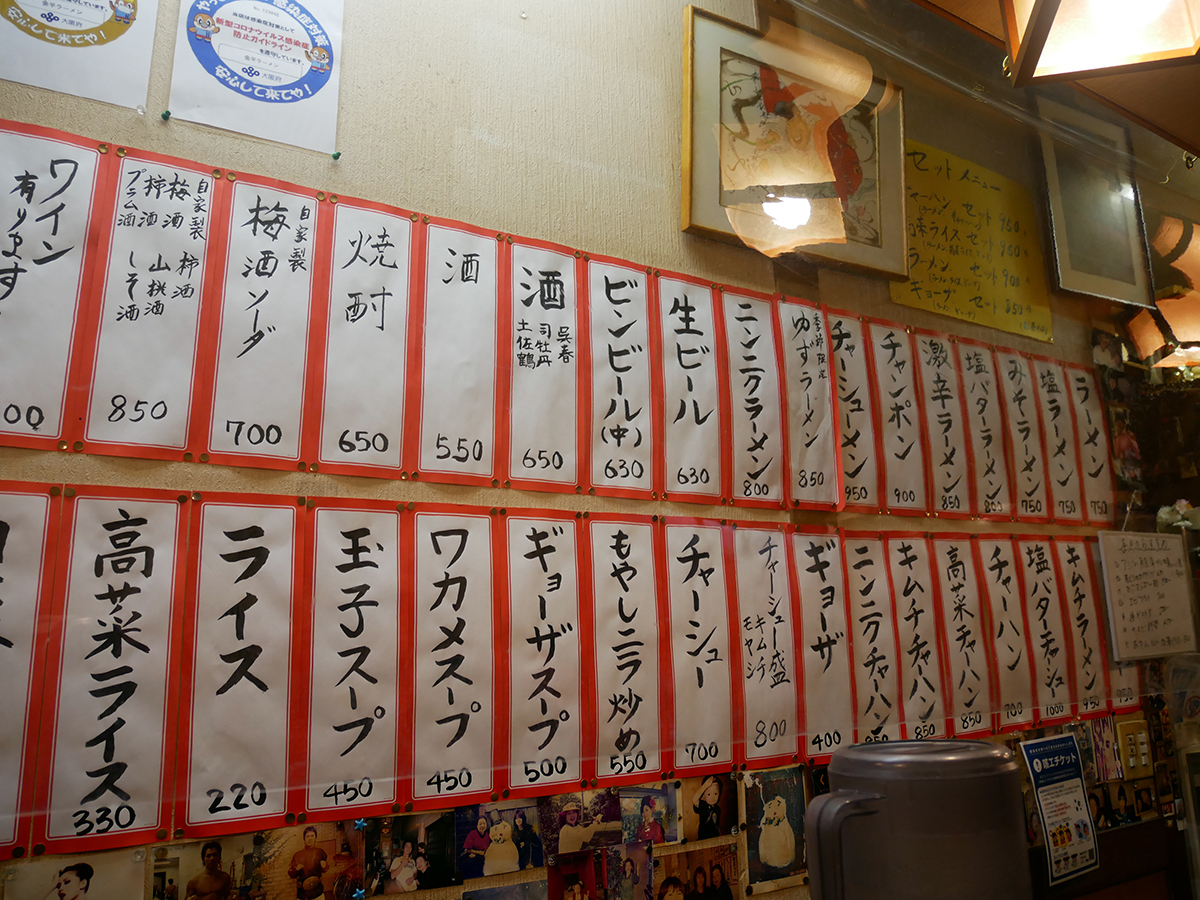 安心して来てや!
感染症対策
新型コロナウイルス感染症
防止ガイドライン
を遵守しています。
金平ラーメン
大阪府
安心して来てや!
セットメニュー
セット 950
ライス セット 950
ラーメン
セット 900
ギョーザ セット 850
ラーメン
750
塩ラーメン
750
みそラーメン
750
塩バターラーメン
800
激辛ラーメン
850
チャンポン
900
チャーシューメン
950
季節限定
ゆずラーメン
850
ニンニクラーメン
800
生ビール
630
ビンビール(中)
630
酒
呉春
司牡丹
土佐鶴
650
酒
550
焼酎
650
自家製
梅酒ソーダ
700
自家製
梅酒 柿酒
柿酒 山桃酒
プラム酒 しそ酒
850
ワイン
有ります
00
750
キムチラーメン
950
塩バターチャーシュー
1000
チャーハン
700
高菜チャーハン
850
キムチチャーハン
850
ニンニクチャーハン
850
ギョーザ
400
チャーシュー盛
キムチ
モヤシ
800
チャーシュー
700
もやしニラ炒め
550
ギョーザスープ
500
ワカメスープ
450
玉子スープ
450
ライス
220
高菜ライス
330